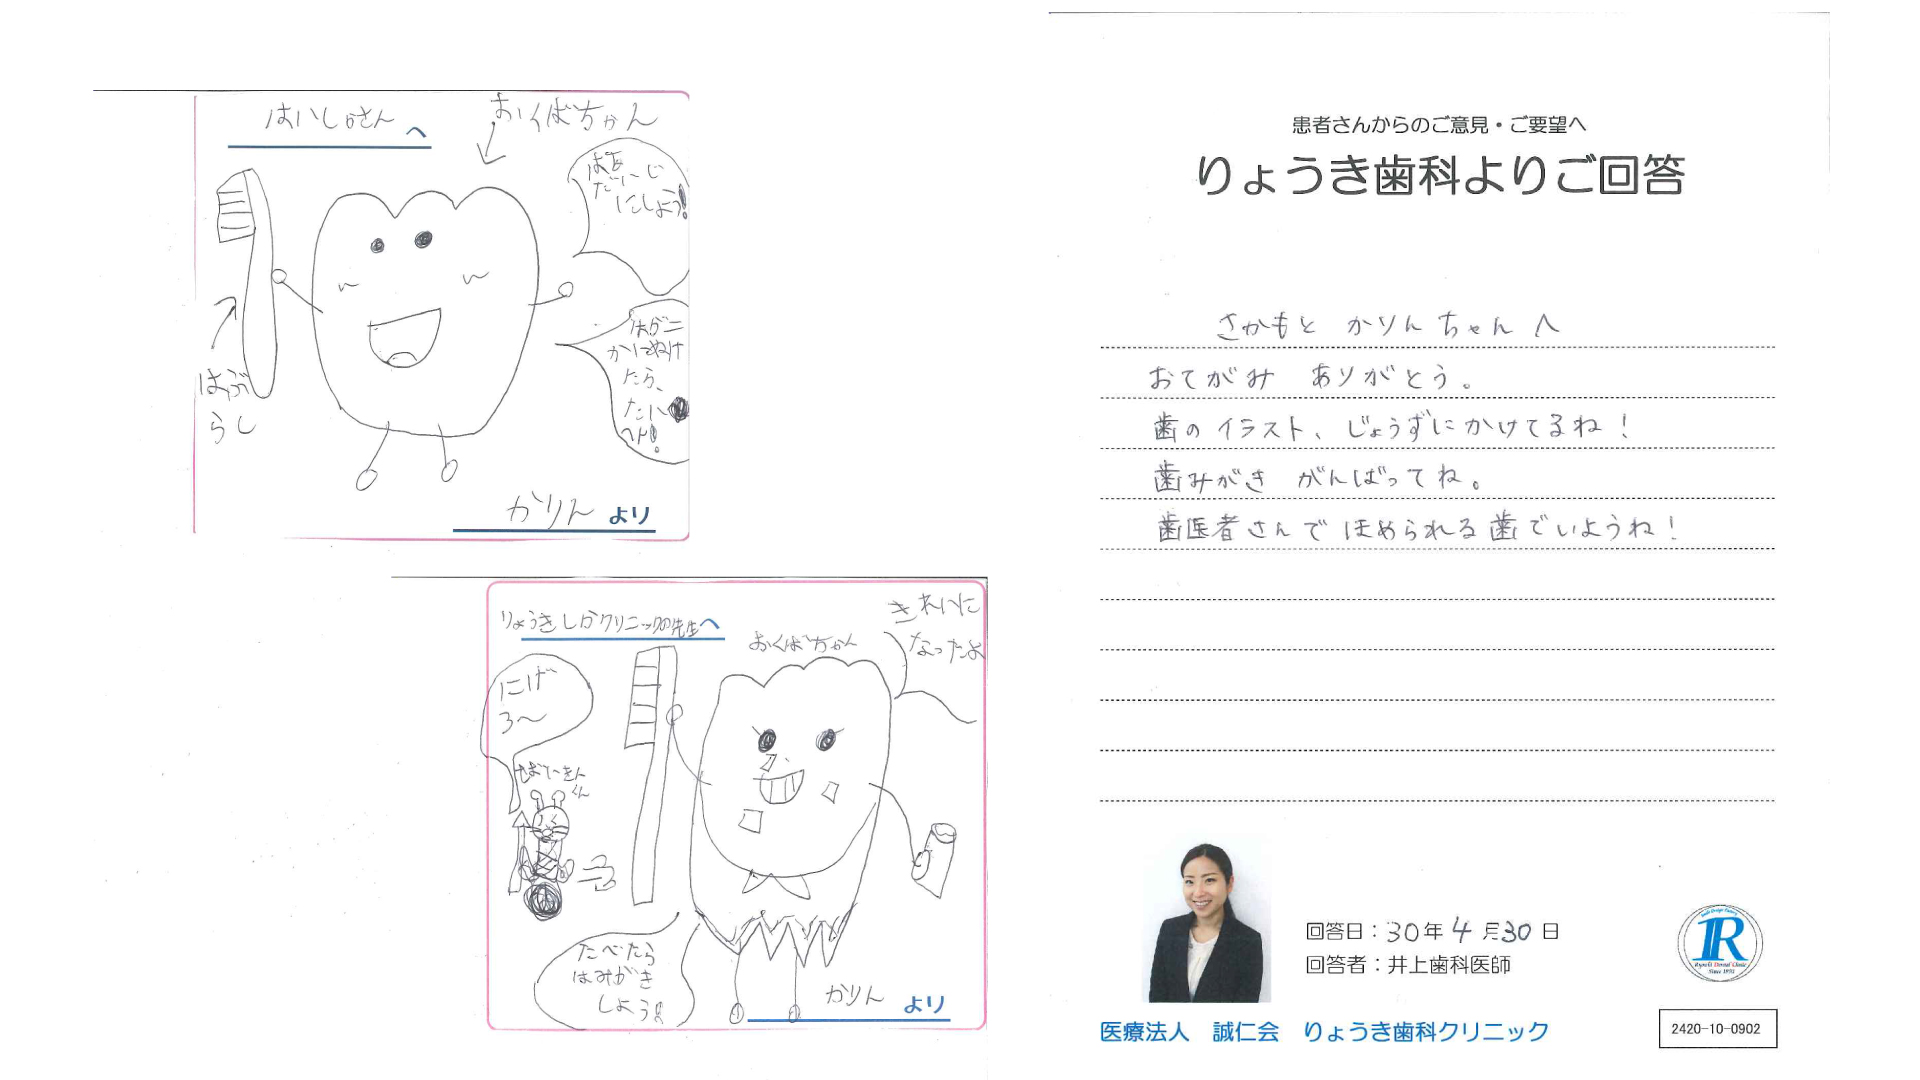 はいしゃさん へ
おくばちゃん
はあ
だいじ
にしよう!
はが二
かいぬけ
たら、
たいへん!
はぶ
らし
かりん より
りょうきしかクリニックの先生へ
きれいに
なったよ
おくばちゃん
にげ
ろ〜
たべたら
はみがき
しよう!!
かりん より
患者さんからのご意見・ご要望へ
りょうき歯科よりご回答
さかもと かりん ちゃん へ
おてがみ ありがとう。
歯のイラスト、じょうずにかけてるね!
歯みがき がんばってね。
歯医者さんで ほめられる歯でいようね!
回答日:30年4月30日
回答者:井上歯科医師
R
Ryouki Dental Clinic
Since 1931
医療法人 誠仁会 りょうき歯科クリニック
2420-10-0902